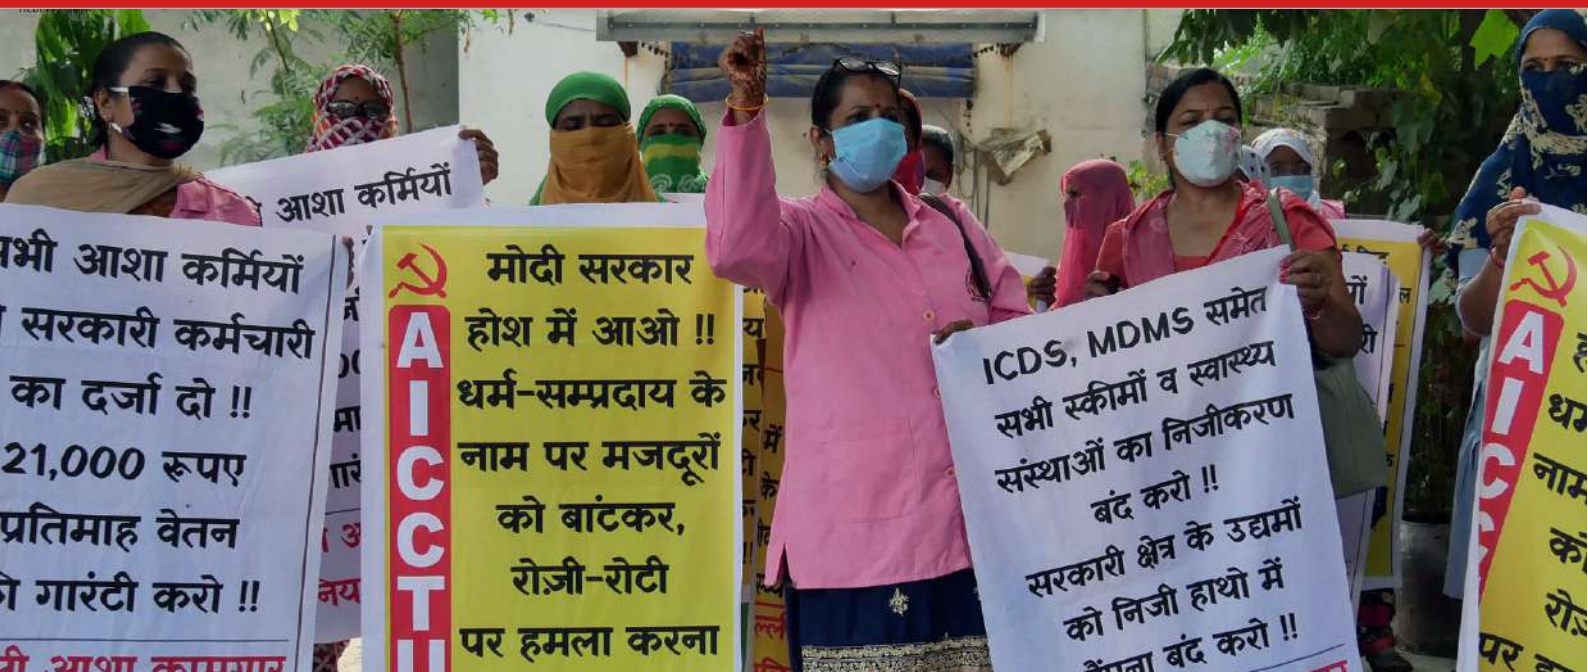 आशा कर्मियों
सभी आशा कर्मियों
सरकारी कर्मचारी
का दर्जा दो !!
21,000 रूपए
प्रतिमाह वेतन
गारंटी करो !!
आशा कामगार
AICCTU
मोदी सरकार
होश में आओ !!
धर्म-सम्प्रदाय के
नाम पर मजदूरों
को बांटकर,
रोज़ी-रोटी
पर हमला करना
ICDS, MDMS समेत
सभी स्कीमों व स्वास्थ्य
संस्थाओं का निजीकरण
बंद करो !!
सरकारी क्षेत्र के उद्यमों
को निजी हाथो में
बंद करो !!
AICC
नाम
पर